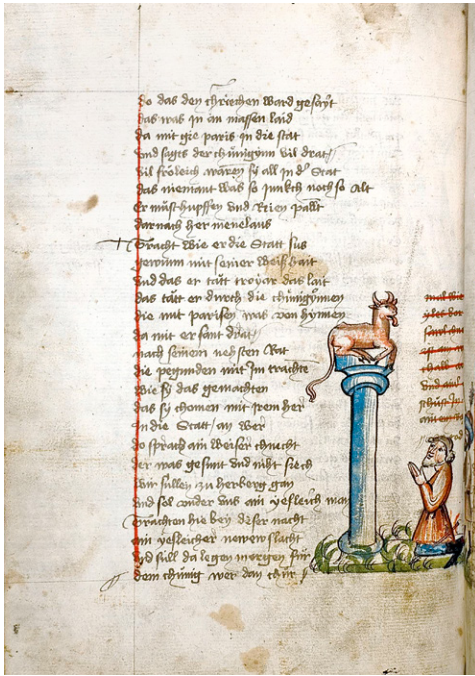 do das den chriechen ward gesayt
das was in an massen laid
da mit gie paris in die stat
und sagts der chünigynn vil drat
vil fröleich wåren sÿ all in der Stat
das niemant was so junkch noch so alt
Er müst hupffen und Reien palt
dar nach her menelaus
Tracht wie er die Statt sus
gewunn mit seiner weishait
und das er tått troyar das lait
das tått er durch die chünigynnen
die mit parisen was von hynnen
da mit er sant drat
nach seinem nehsten Rat
die pegunden mit Im trachten
wie sÿ das gemachten
das sÿ chomen mit irem her
in die Statt an wer
do sprach ain weiser chnecht
er was gesunt und niht siech
wir süllen zu herberg gan
und sol under uns ain yesleich man
Trachten hie bey deser nacht
ain yesleicher newen slacht
und süll da legen morgen für
dem chünig wer dan chür